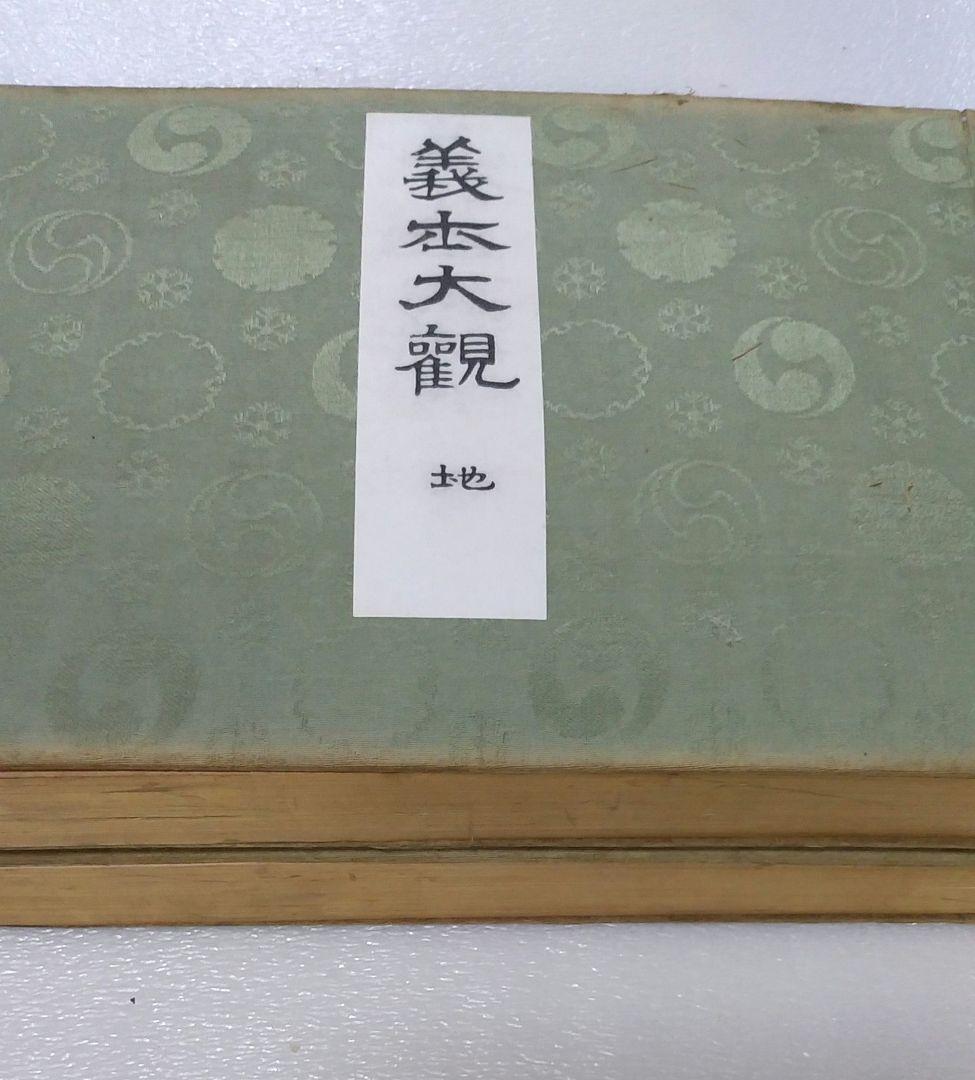 義士大觀
地